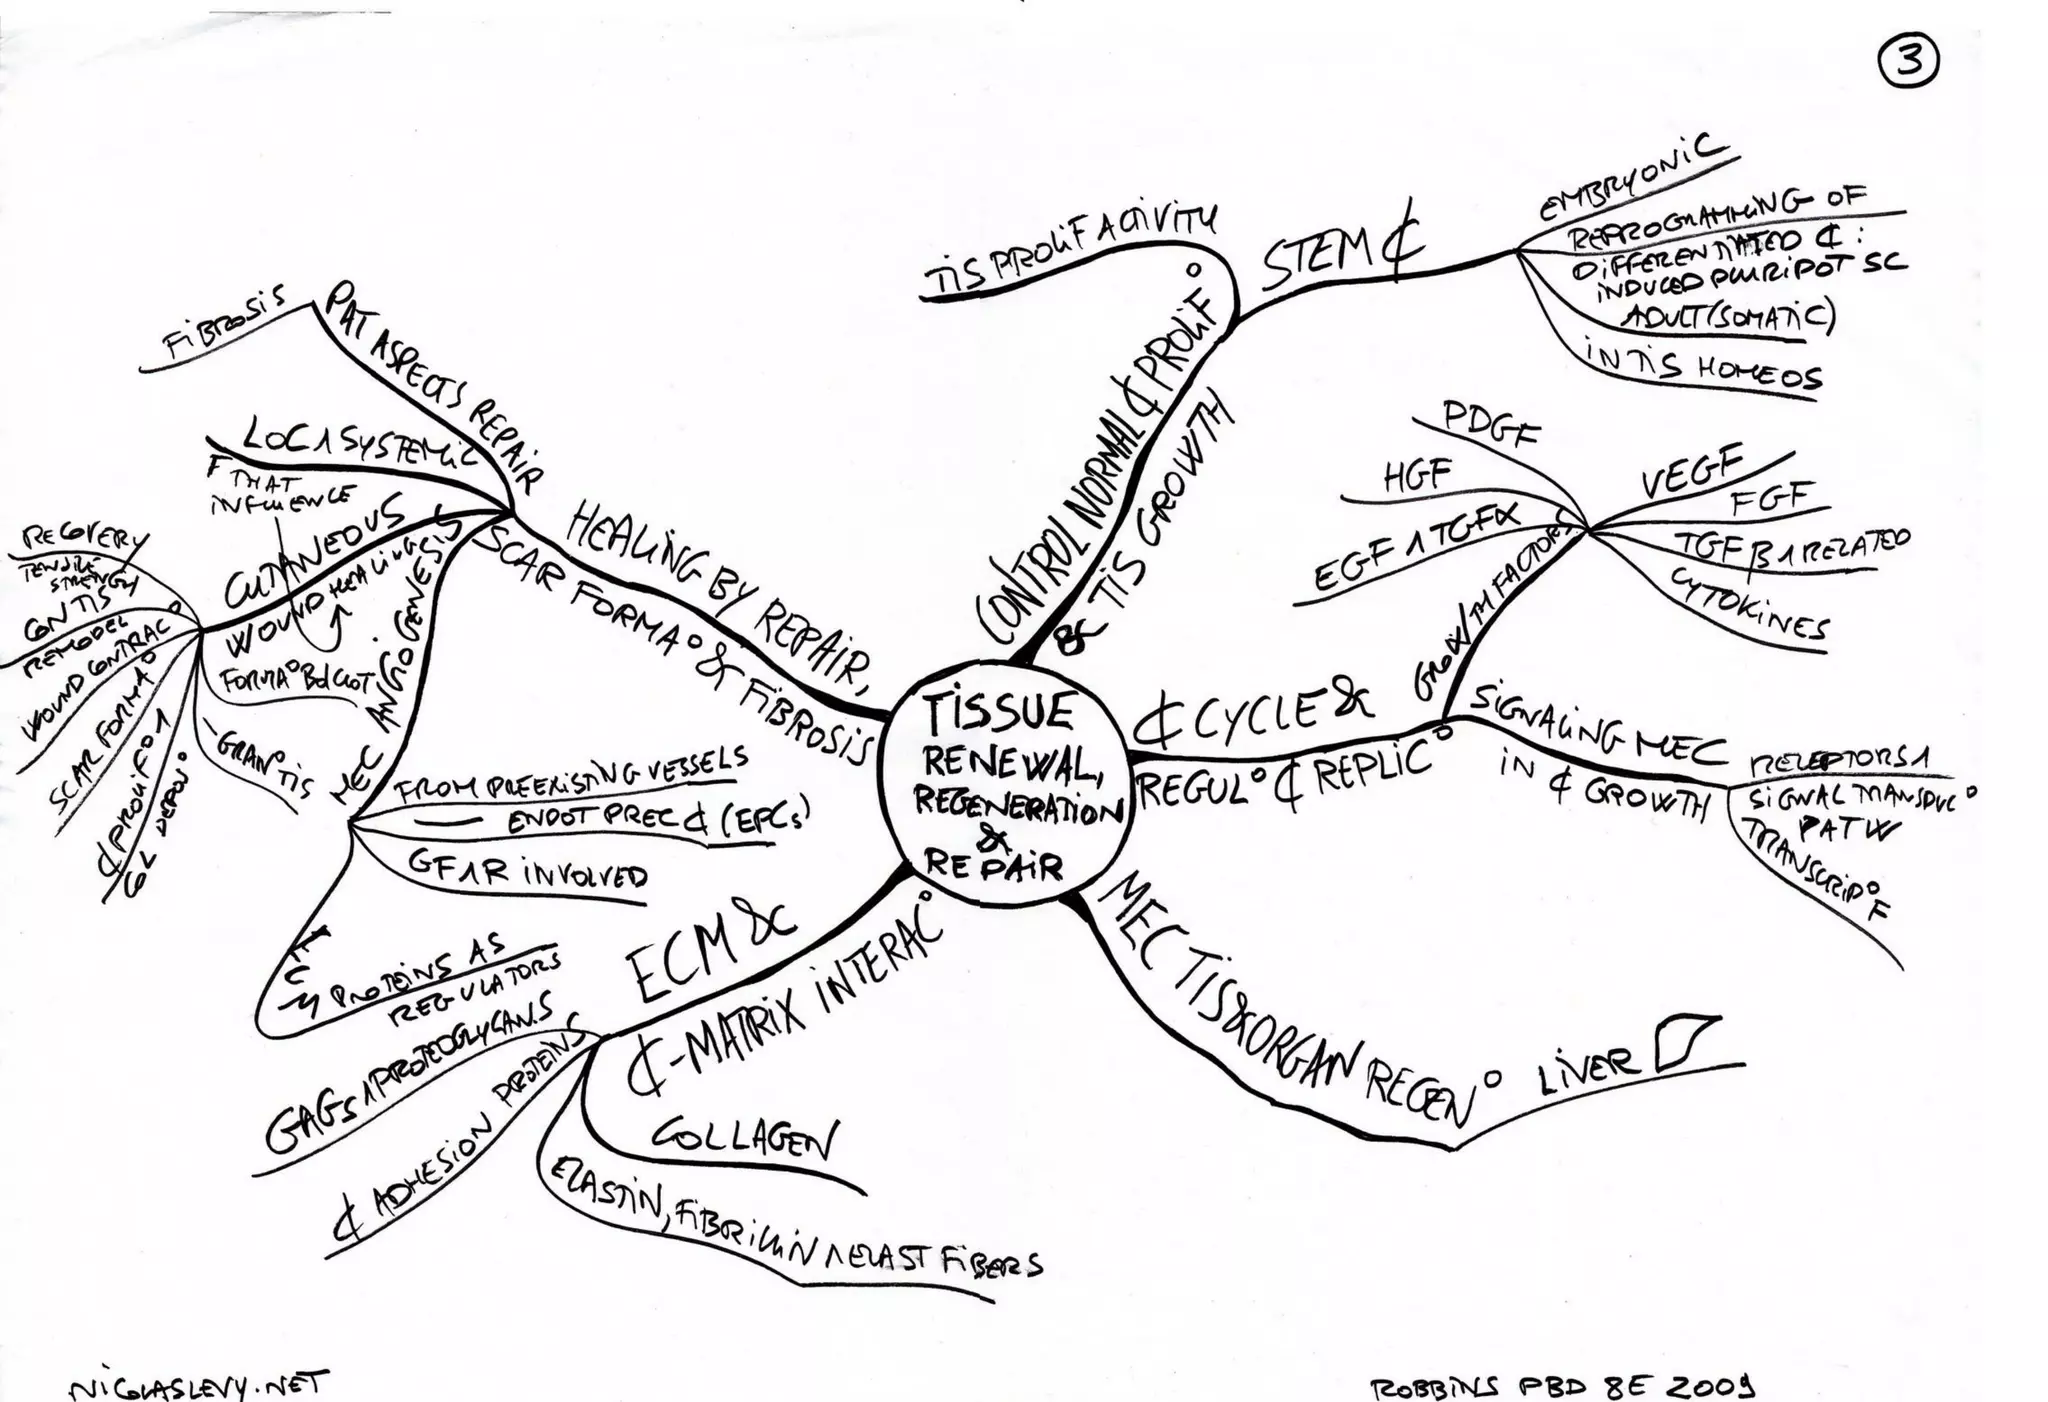 3
TISSUE
RENEWAL,
REGENERATION
&
REPAIR
CONTROL NORMAL ₵ PROLIF°
& TIS GROWTH
TIS PROLIF ACTIVITY
STEM ₵
EMBRYONIC
REPROGRAMMING OF
DIFFERENTIATED ₵ :
INDUCED PLURIPOT SC
ADULT (SOMATIC)
IN TIS HOMEOS
₵ CYCLE &
REGUL° ₵ REPLIC°
GROWTH FACTORS
PDGF
HGF
EGF ∧ TGFα
VEGF
FGF
TGF β ∧ RELATED
CYTOKINES
SIGNALING MEC
IN ₵ GROWTH
RECEPTORS ∧
SIGNAL TRANSDUC°
PATW
TRANSCRIP° F
MEC TIS & ORGAN REGEN°
LIVER
ECM &
₵-MATRIX INTERAC°
COLLAGEN
ELASTIN, FIBRILLIN ∧ ELAST FIBERS
₵ ADHESION PROTEINS
GAGS ∧ PROTEOGLYCANS
HEALING BY REPAIR,
SCAR FORMA° & FIBROSIS
PAT ASPECTS REPAIR
FIBROSIS
LOC ∧ SYSTEMIC
F THAT
INFLUENCE
CUTANEOUS
WOUND HEALING
RECOVERY
TENSILE
STRENGTH
CON TIS
REMODEL
WOUND CONTRAC°
SCAR FORMA°
₵ PROLIF° ∧
COL DEPOS°
GRAN° TIS
FORMA° Bd CLOT
MEC ANGIOGENESIS
FROM PREEXISTING VESSELS
— ENDOT PREC ₵ (EPCs)
GF ∧ R INVOLVED
ECM PROTEINS AS
REGULATORS
NICOLASLEVY.NET
ROBBINS PBD 8E 2009